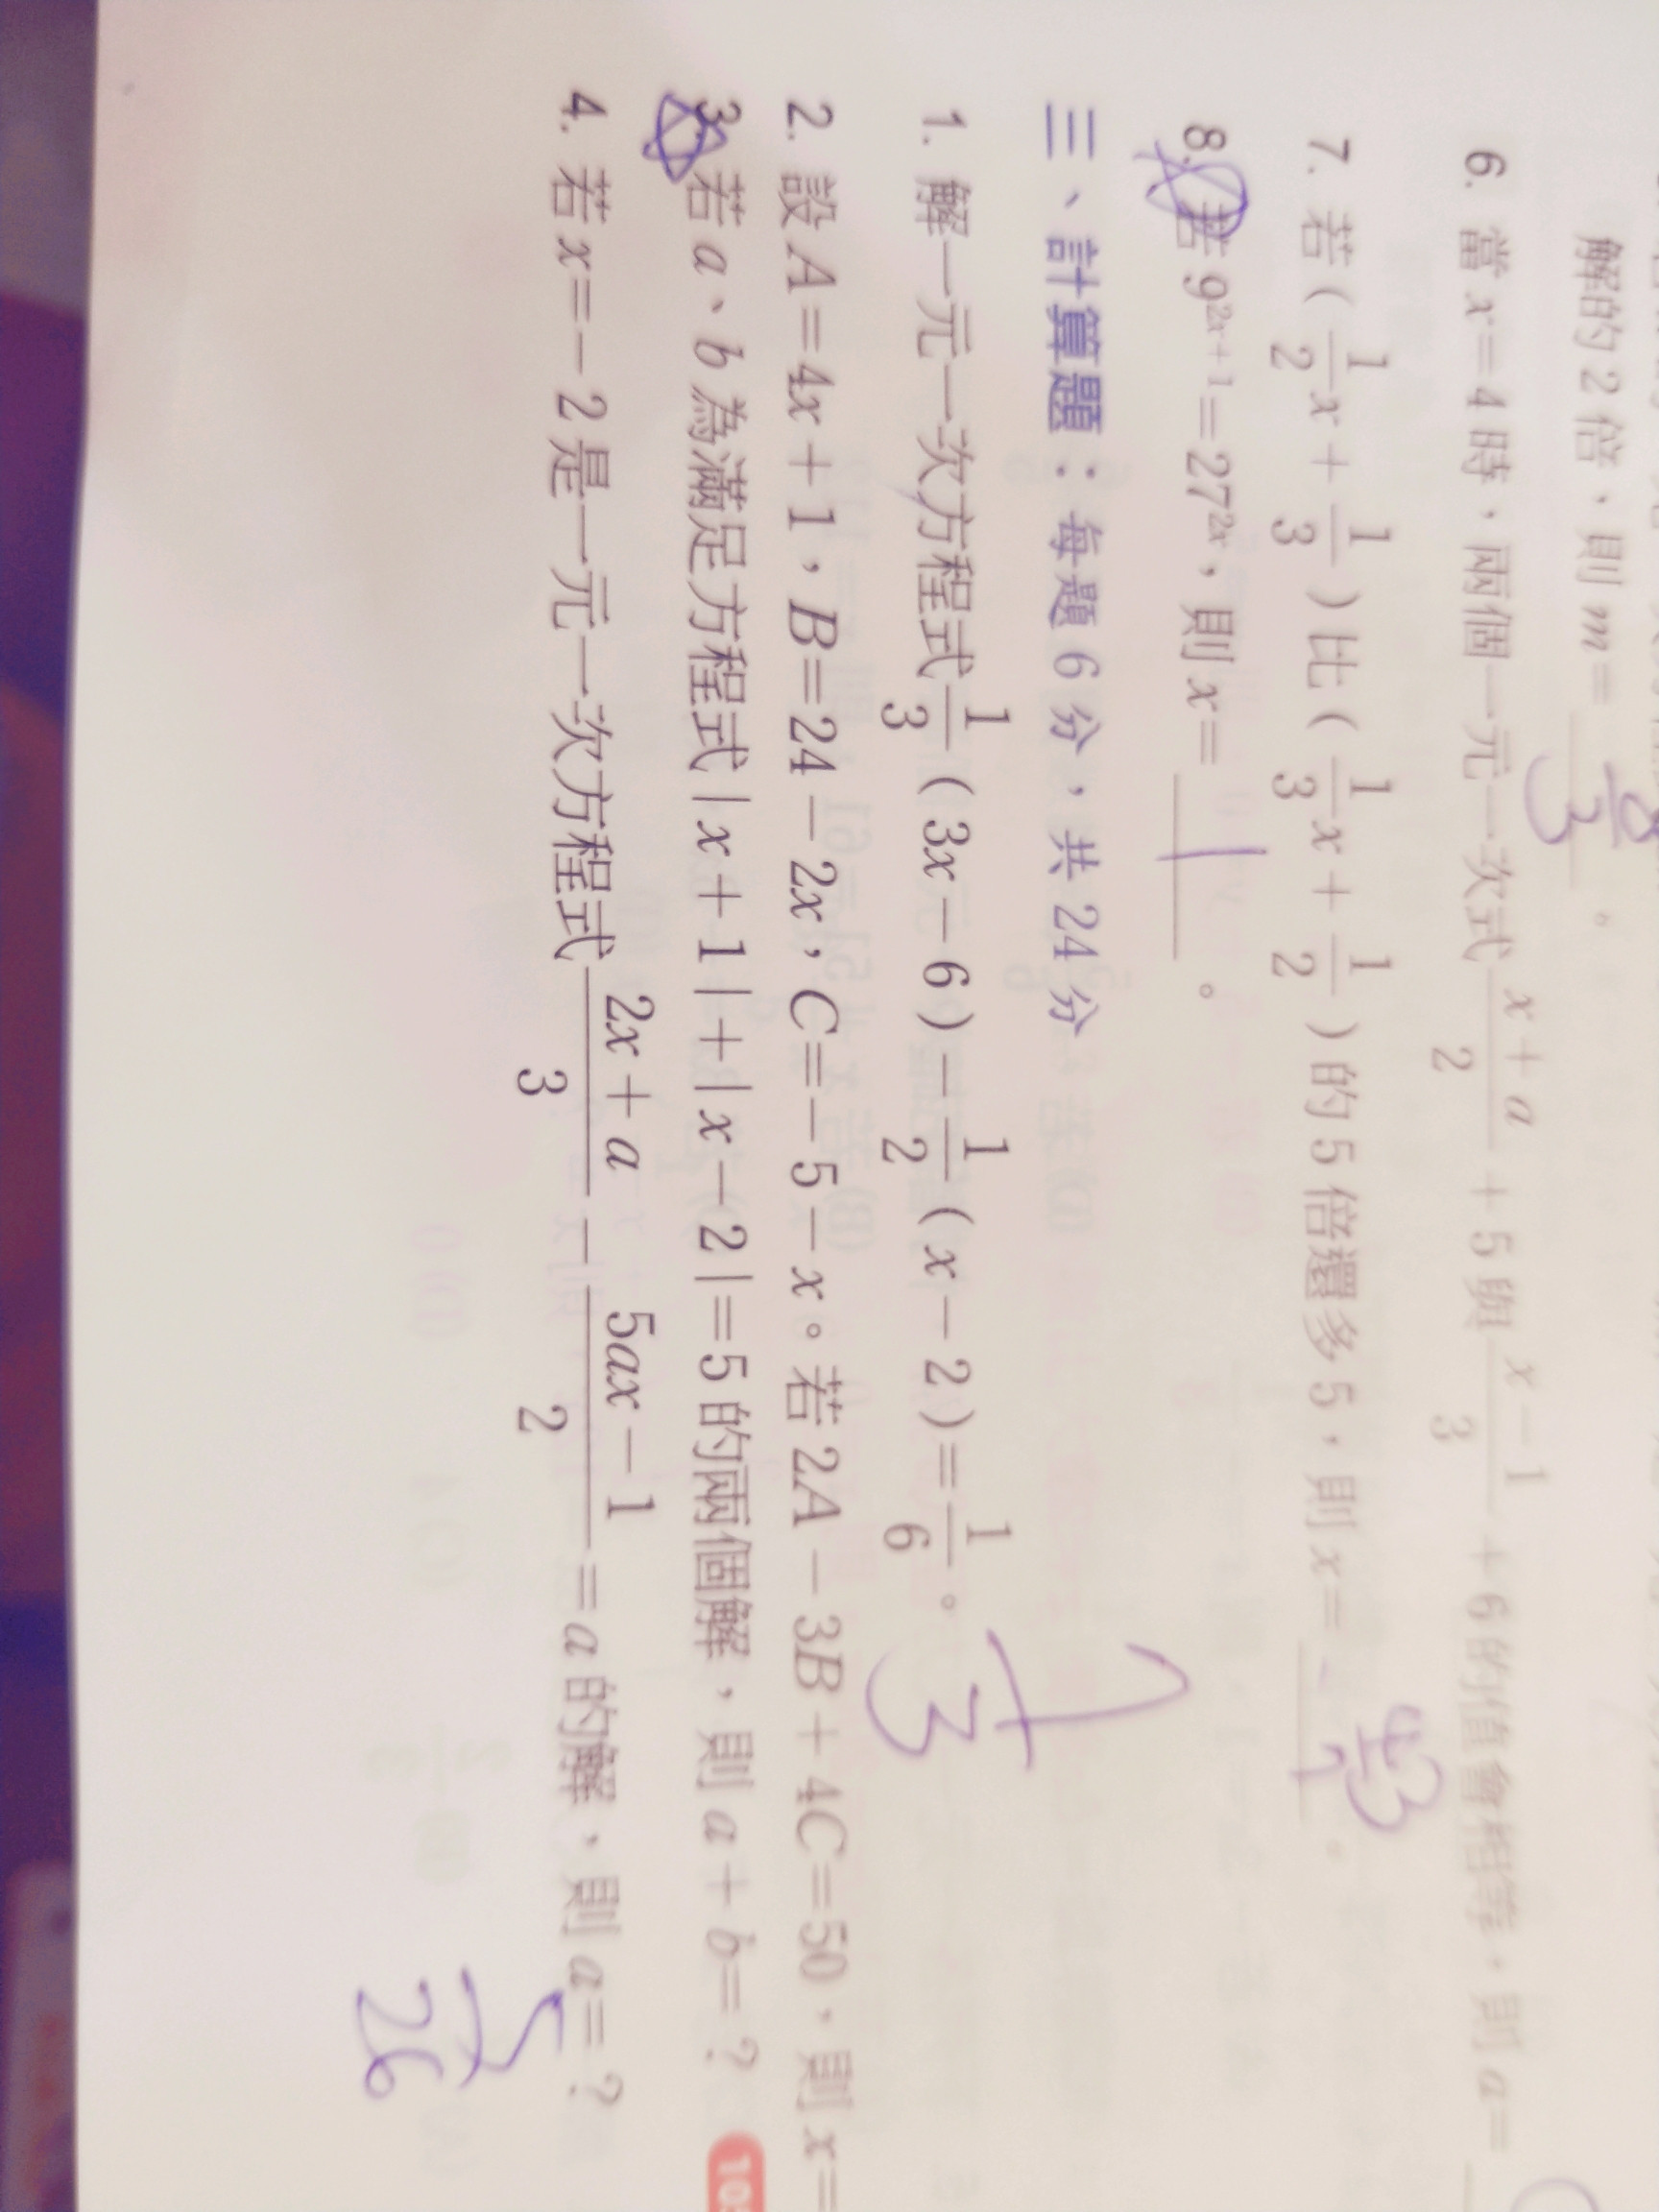 解的 2 倍,則 m = 8/3 。
6. 當 x = 4 時,兩個一元一次式 (x + a)/2 + 5 與 (x − 1)/3 + 6 的值會相等,則 a =
7. 若 ( 1/2 x + 1/3 ) 比 ( 1/3 x + 1/2 ) 的 5 倍還多 5,則 x = 。
8. 若 9^(2x+1) = 27^(2x),則 x = 1 。
三、計算題:每題 6 分,共 24 分
1. 解一元一次方程式 1/3 ( 3x − 6 ) − 1/2 ( x − 2 ) = 1/6 。 7/3
2. 設 A = 4x + 1,B = 24 − 2x,C = − 5 − x。若 2A − 3B + 4C = 50,則 x =
3. 若 a、b 為滿足方程式 | x + 1 | + | x − 2 | = 5 的兩個解,則 a + b = ?
4. 若 x = − 2 是一元一次方程式 (2x + a)/3 − (5ax − 1)/2 = a 的解,則 a = ?
26